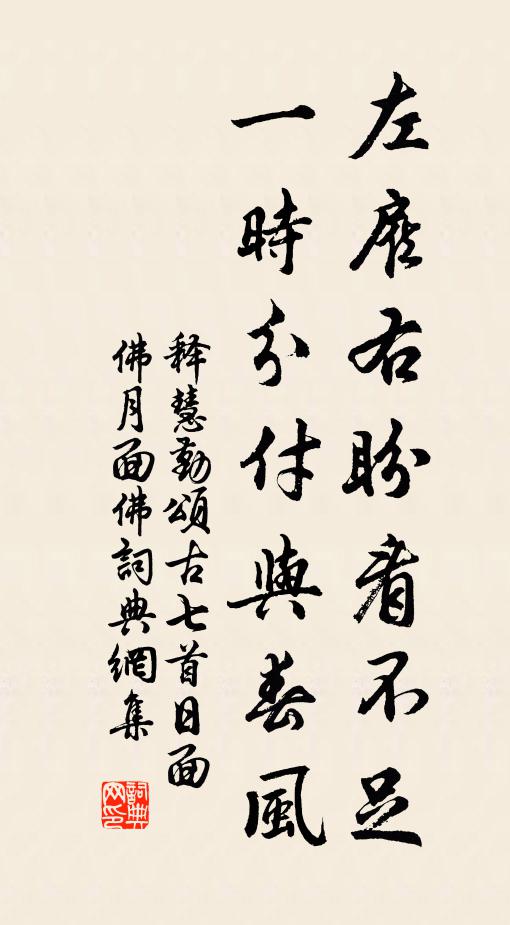 左雇右盼看不足
一時分付與春風
释慧勤頌古七首日面
佛月面佛詞典網集
詞典
网印